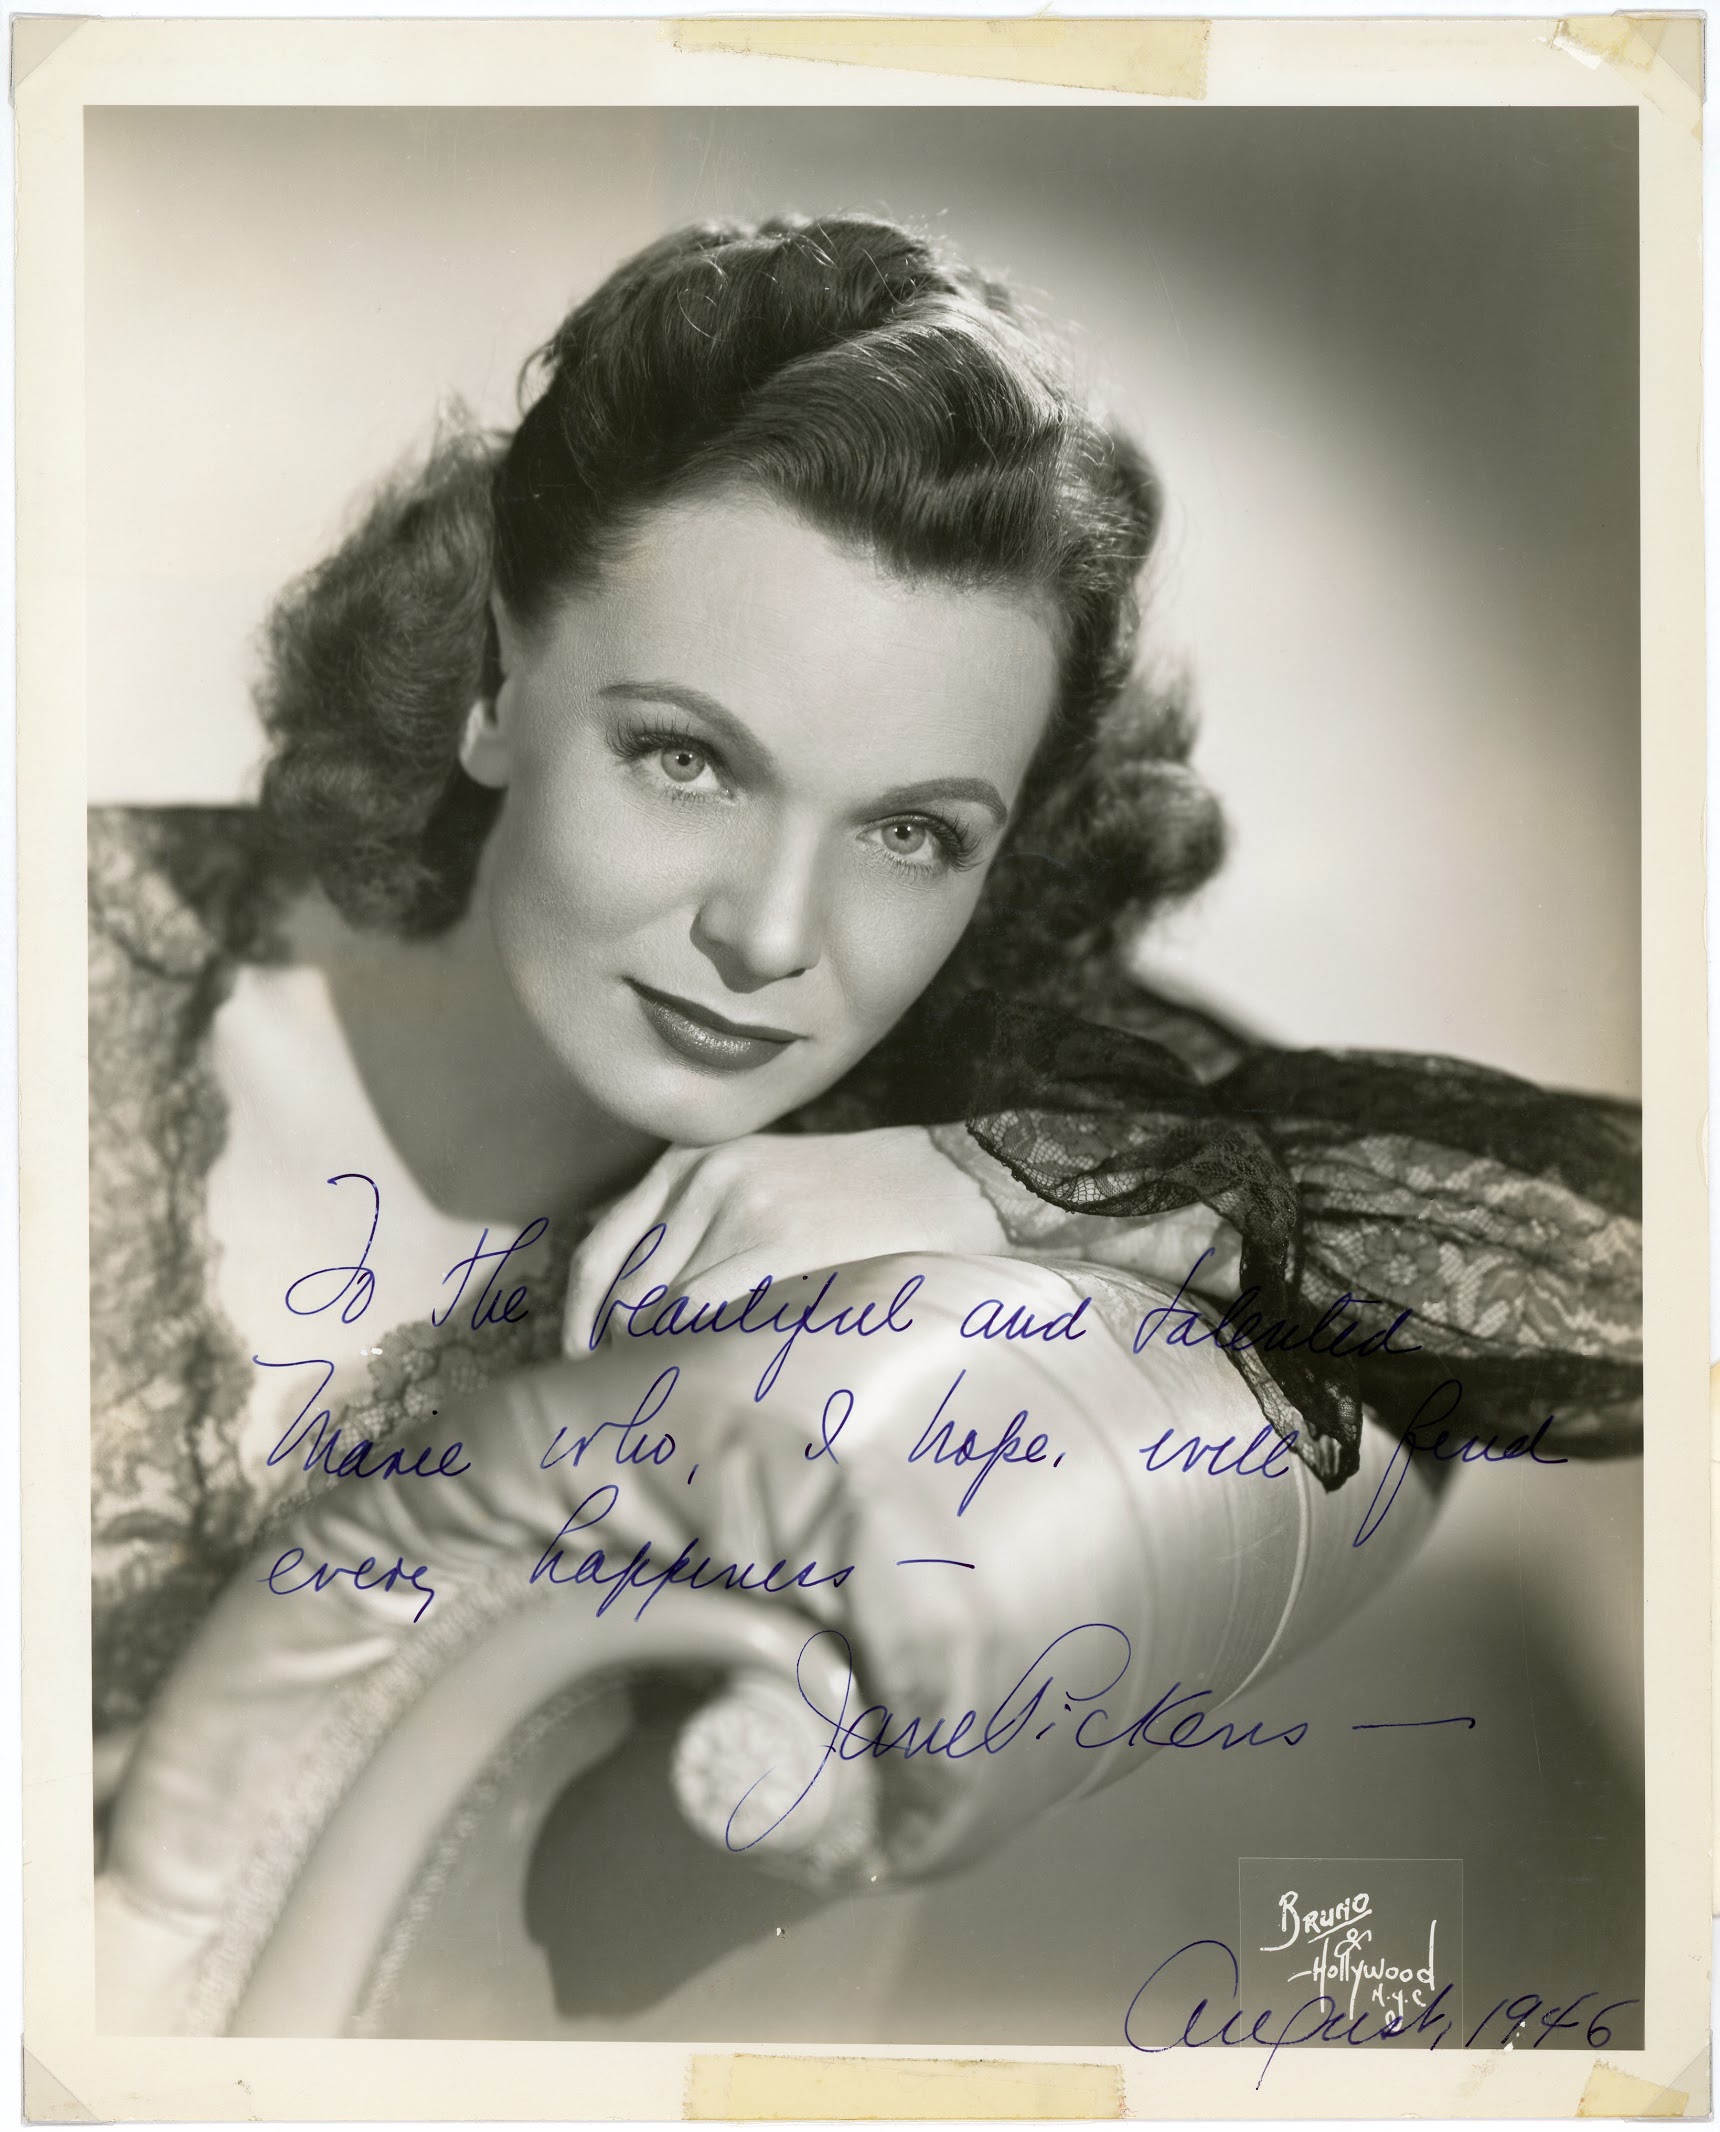 To the beautiful and talented
Marie who, I hope, will find
every happiness —
Jane Pickens —
Bruno
of
Hollywood
N.Y.C
August, 1946